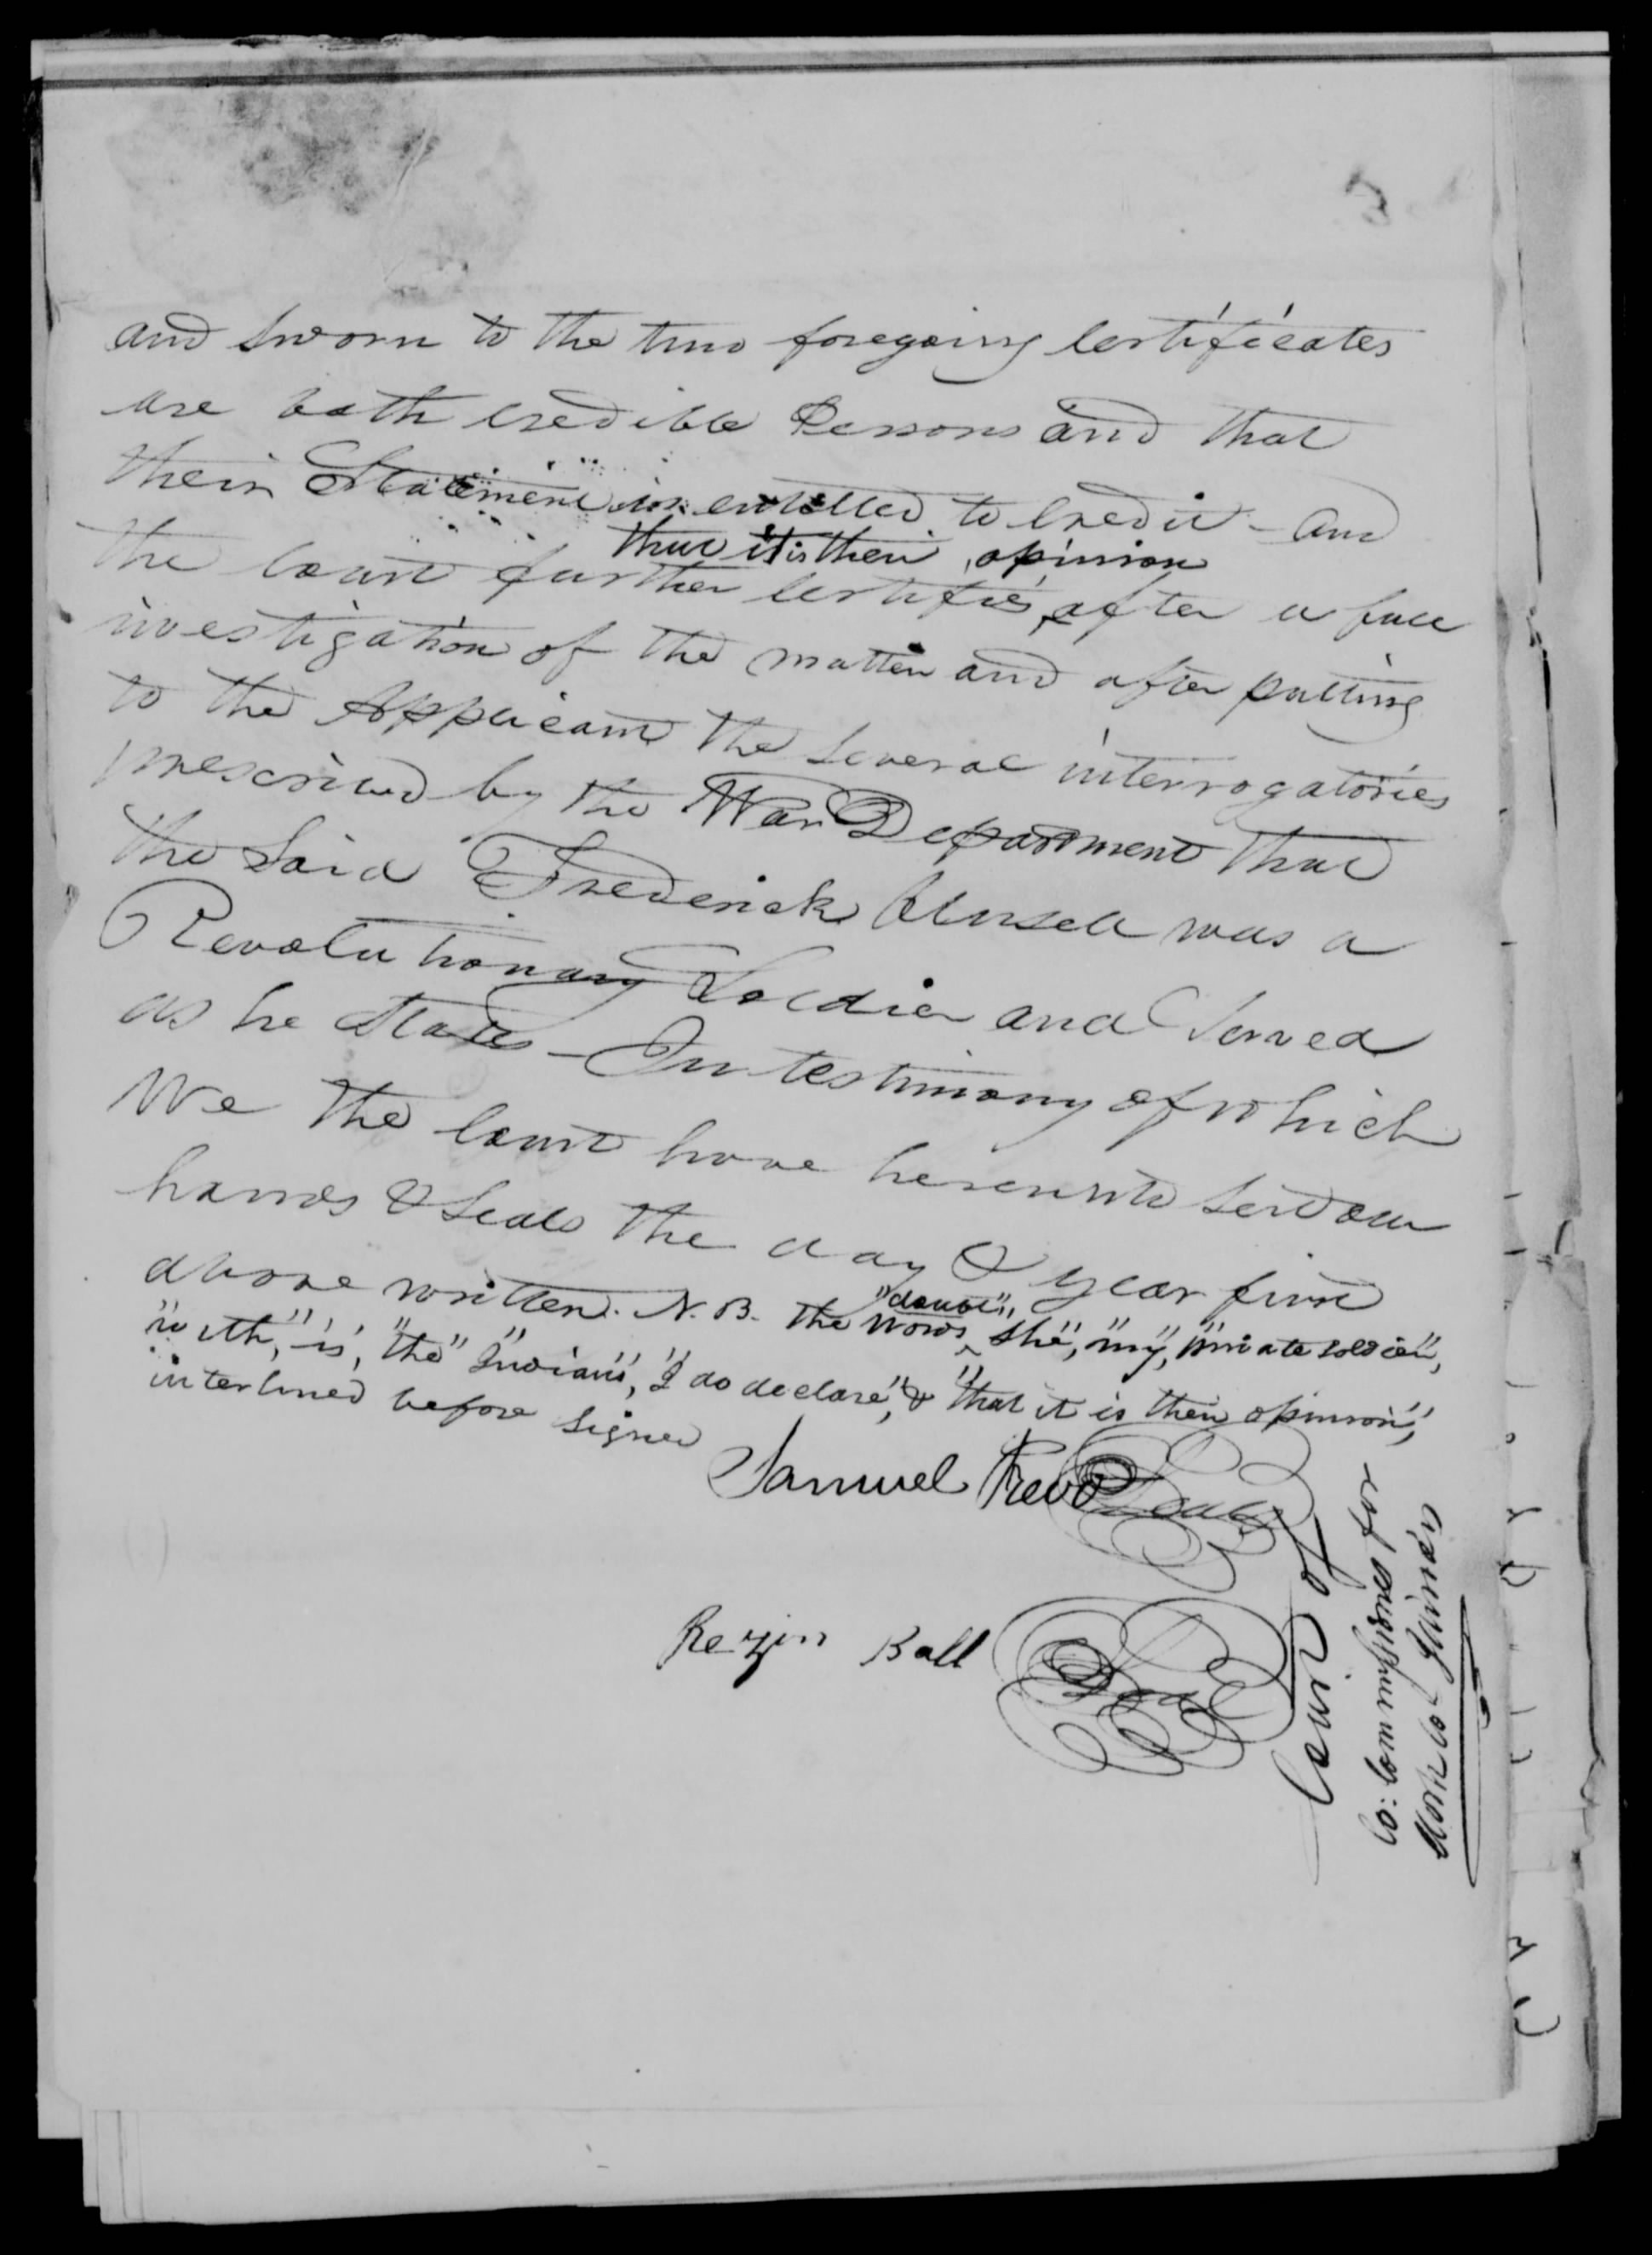 and sworn to the two foregoing certificates
are both credible Persons and that
their Statement is entitled to credit - and
that it is their opinion
the Court further certifies, after a full
investigation of the matter and after putting
to the Applicant the several interrogatories
prescribed by the War Department that
the said Frederick was a
Revolutionary Soldier and Served
as he States - In testimony of which
We the Court have hereunto set our
hands & Seals the day & year first
above written. N.B. the words "she", "my", "private soldier",
"with", "is", "the" "Indians", "I do declare", & "that it is their opinion",
interlined before signed
Samuel Seal
Rezin Ball Seal
Court of
Co: Commissioners for